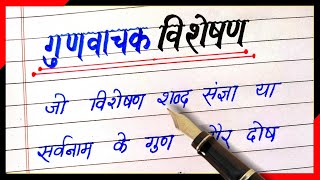 गुणवाचक विशेषण
जो विशेषण शब्द संज्ञा या
सर्वनाम के गुण और दोष